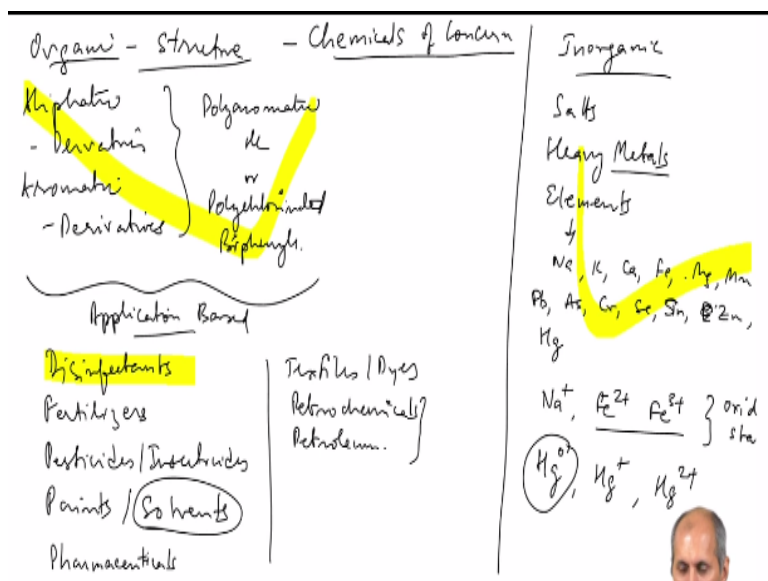 Organi - Structure - Chemicals of Concern
Aliphatic
- Derivatives
Aromatic
- Derivatives
Polyaromatic
HC
or
Polychlorinated
Biphenyls.
Application Based
Disinfectants
Fertilizers
Pesticides/Insecticides
Paints / Solvents
Pharmaceuticals
Textiles / Dyes
Petrochemicals
Petroleum.
Inorganic
Salts
Heavy Metals
Elements
↓
Na, K, Ca, Fe, Mg, Mn
Pb, As, Cr, Se, Sn, Zn,
Hg
Na⁺, Fe²⁺ Fe³⁺ } oxid
sta
Hg⁰, Hg⁺, Hg²⁺